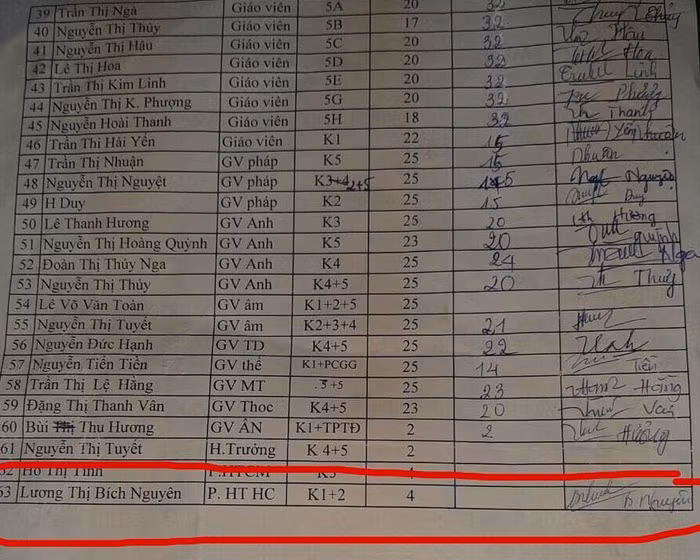 39 Trần Thị Nga Giáo viên 5A 20 32
40 Nguyễn Thị Thủy Giáo viên 5B 17 32
41 Nguyễn Thị Hậu Giáo viên 5C 20 32 Hậu
42 Lê Thị Hoa Giáo viên 5D 20 32 Hoa
43 Trần Thị Kim Linh Giáo viên 5E 20 32 Linh
44 Nguyễn Thị K. Phượng Giáo viên 5G 20 32
45 Nguyễn Hoài Thanh Giáo viên 5H 18 32 Thanh
46 Trần Thị Hải Yến Giáo viên K1 22 15 Yến
47 Trần Thị Nhuận GV pháp K5 25 15 Nhuận
48 Nguyễn Thị Nguyệt GV pháp K3+4 2+5 25 15
49 H Duy GV pháp K2 25 15 Duy
50 Lê Thanh Hương GV Anh K3 25 20 Hương
51 Nguyễn Thị Hoàng Quỳnh GV Anh K5 23 20 Quỳnh
52 Đoàn Thị Thúy Nga GV Anh K4 25 24 Nga
53 Nguyễn Thị Thủy GV Anh K4+5 25 20 Thủy
54 Lê Võ Văn Toản GV âm K1+2+5 25
55 Nguyễn Thị Tuyết GV âm K2+3+4 25 21
56 Nguyễn Đức Hạnh GV TD K4+5 25 22
57 Nguyễn Tiến Tiền GV thể K1+PCGG 25 14
58 Trần Thị Lệ Hằng GV MT 3+5 25 23 Hằng
59 Đặng Thị Thanh Vân GV Thoc K4+5 23 20 Vân
60 Bùi Thu Hương GV ÂN K1+TPTĐ 2 2 Hương
61 Nguyễn Thị Tuyết H.Trưởng K 4+5 2
62 Hồ Thị Tình P.HTCM K3 4
63 Lương Thị Bích Nguyên P. HT HC K1+2 4 B. Nguyên